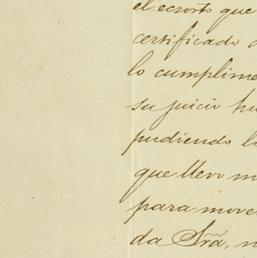 el ecsorto que
certificado
lo cumplime
su juicio ha
pudiendo
que llevo
para move
da Srã,